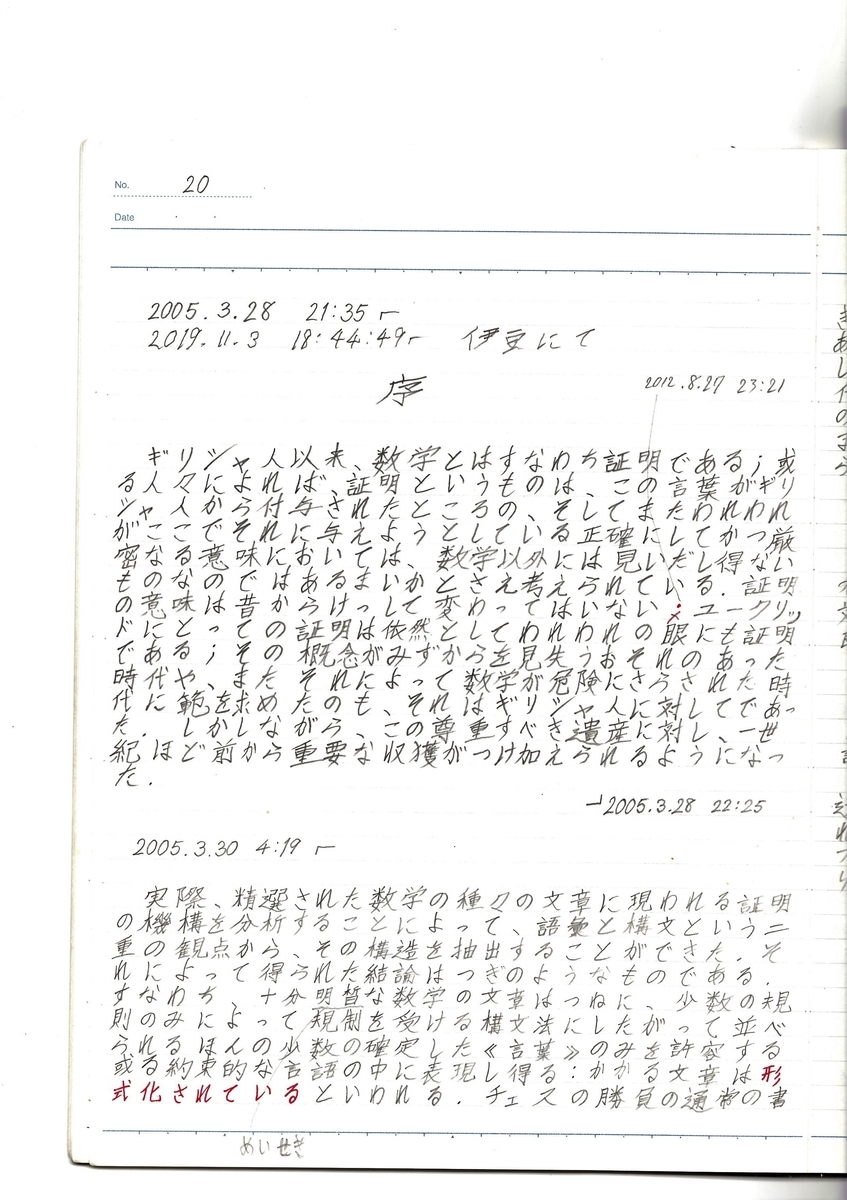 No. 20
Date ・ ・
2005.3.28 21:35 ┌
2019.11.3 18:44:49┌ 伊豆にて
序 2012.8.27 23:21
ギリシャ人以来、数学とはすなわち証明である；或
る人々によれば、証明というものは、この言葉がギリ
シャ人から付与されたところの、そしてまたわれわれ
がここでそれに与えようとしている正確にしてかつ厳
密なる意味においては、数学以外には見いだし得ない
ものなのではあるまいかとさえ考えられている．証明
の意味は昔からけっして変わってはいない；ユークリッ
ドにとっての証明は依然としてわれわれの眼にも証明
である；その概念がみずからを見失うおそれのあった
時代や、またそれによって数学が危険にさらされた時
代に範を求めたのも、それはギリシャ人に対してであっ
た．しかしながら、この尊重すべき遺産に対し、一世
紀ほど前から重要な収獲がつけ加えられるようになっ
た．
┘2005.3.28 22:25
2005.3.30 4:19 ┌
実際、精選された数学の種々の文章に現われる証明
の機構を分析することによって、語彙と構文という二
重の観点から、その構造を抽出することができた．そ
れによって得られた結論はつぎのようなものである．
すなわち、十分明晢な数学の文章はつねに、少数の規
則のみによって規制を受ける構文法にしたがって並べ
られるほんの少数の確定した《言葉》のみを許容する
或る約束的な言語の中に表現し得る：かかる文章は形
式化されているといわれる．チェスの勝負の通常の書
めいせき